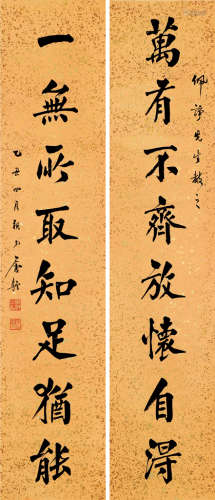 佩諍先生教之
萬有不齊放懷自得
一無所取知足猶能
乙丑四月